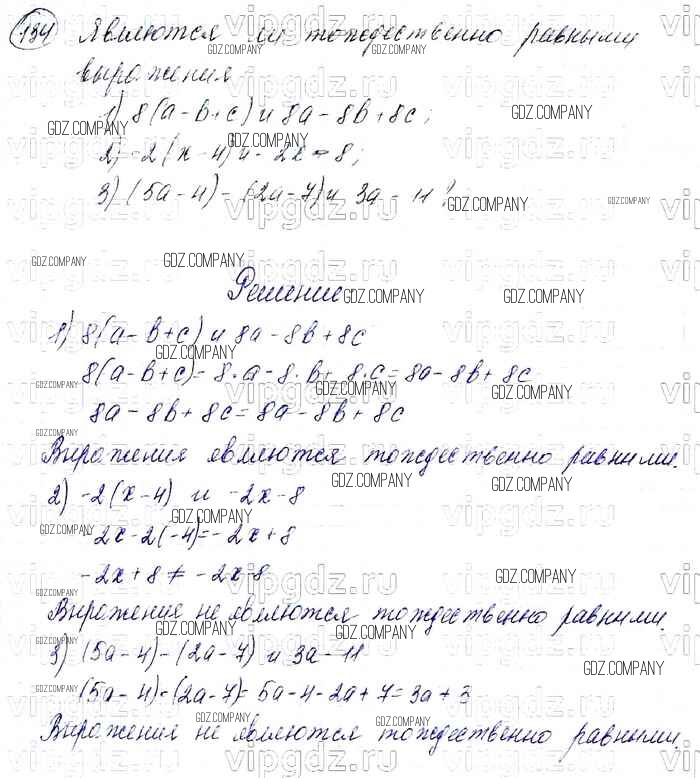 134 Являются ли тождественно равными
выражения
1) 8(a-b+c) и 8a-8b+8c;
2) -2(x-4) и -2x-8;
3) (5a-4)-(2a-7) и 3a-11?
Решение.
1) 8(a-b+c) и 8a-8b+8c
8(a-b+c)=8·a-8·b+8·c=8a-8b+8c
8a-8b+8c=8a-8b+8c
Выражения являются тождественно равными.
2) -2(x-4) и -2x-8
-2x-2(-4)=-2x+8
-2x+8≠-2x-8
Выражения не являются тождественно равными.
3) (5a-4)-(2a-7) и 3a-11
(5a-4)-(2a-7)=5a-4-2a+7=3a+3
Выражения не являются тождественно равными.
GDZ.COMPANY
vipgdz.ru